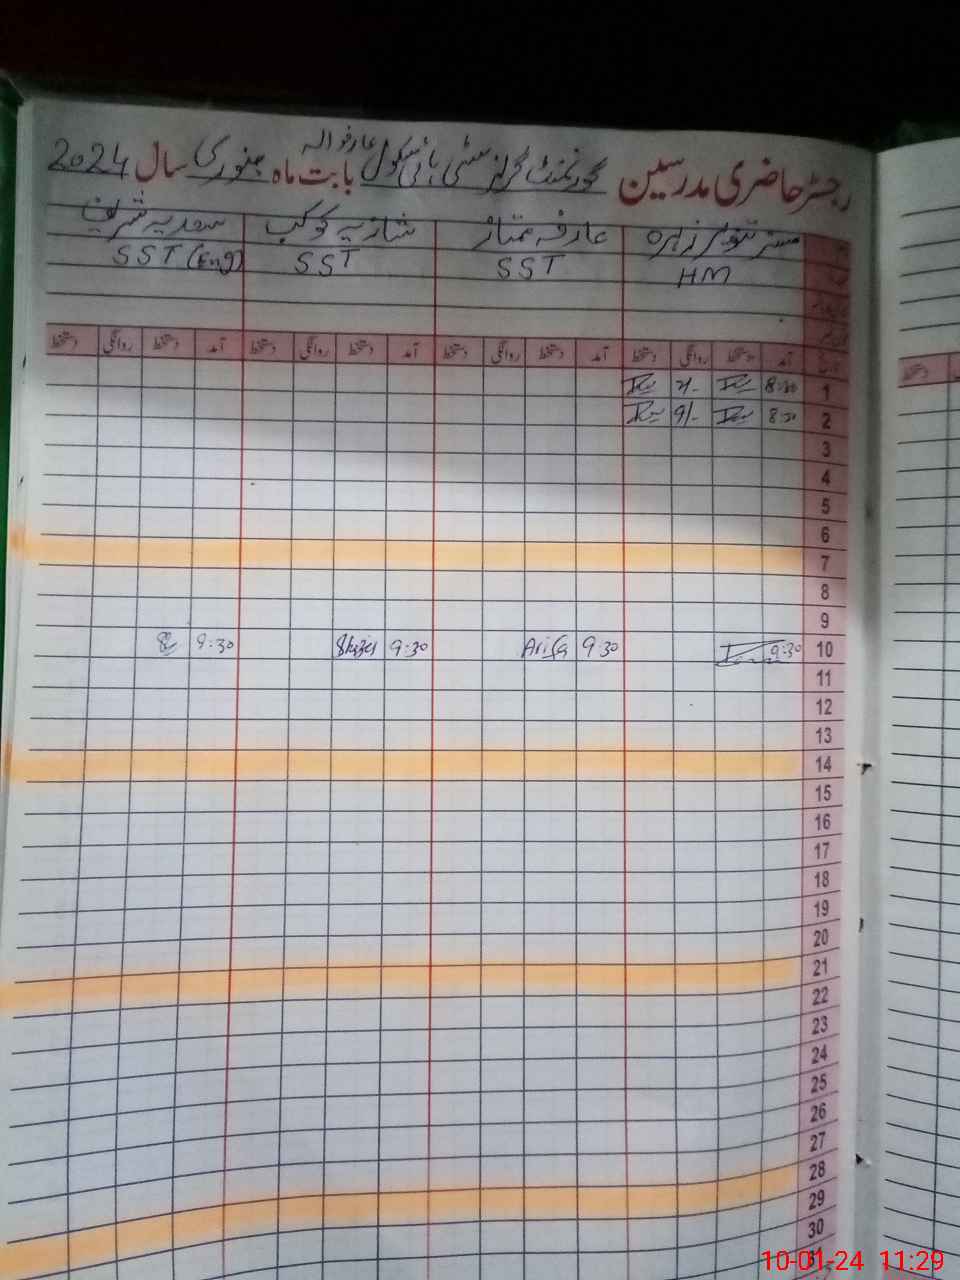 رجسٹر حاضری مدرسین گورنمنٹ گرلز سٹی ہائی سکول عارفوالہ بابت ماہ جنوری سال 2024
مسز تنویر زہرہ عارفہ ممتاز شازیہ کوکب سعدیہ شریف
HM SST SST SST (Eng)
آمد دستخط روانگی دستخط آمد دستخط روانگی دستخط آمد دستخط روانگی دستخط آمد دستخط روانگی دستخط
1 8:30
2 8:30 9/-
3
4
5
6
7
8
9
10 9:30 9:30 Arifa 9:30 9:30
11
12
13
14
15
16
17
18
19
20
21
22
23
24
25
26
27
28
29
30
10-01-24 11:29